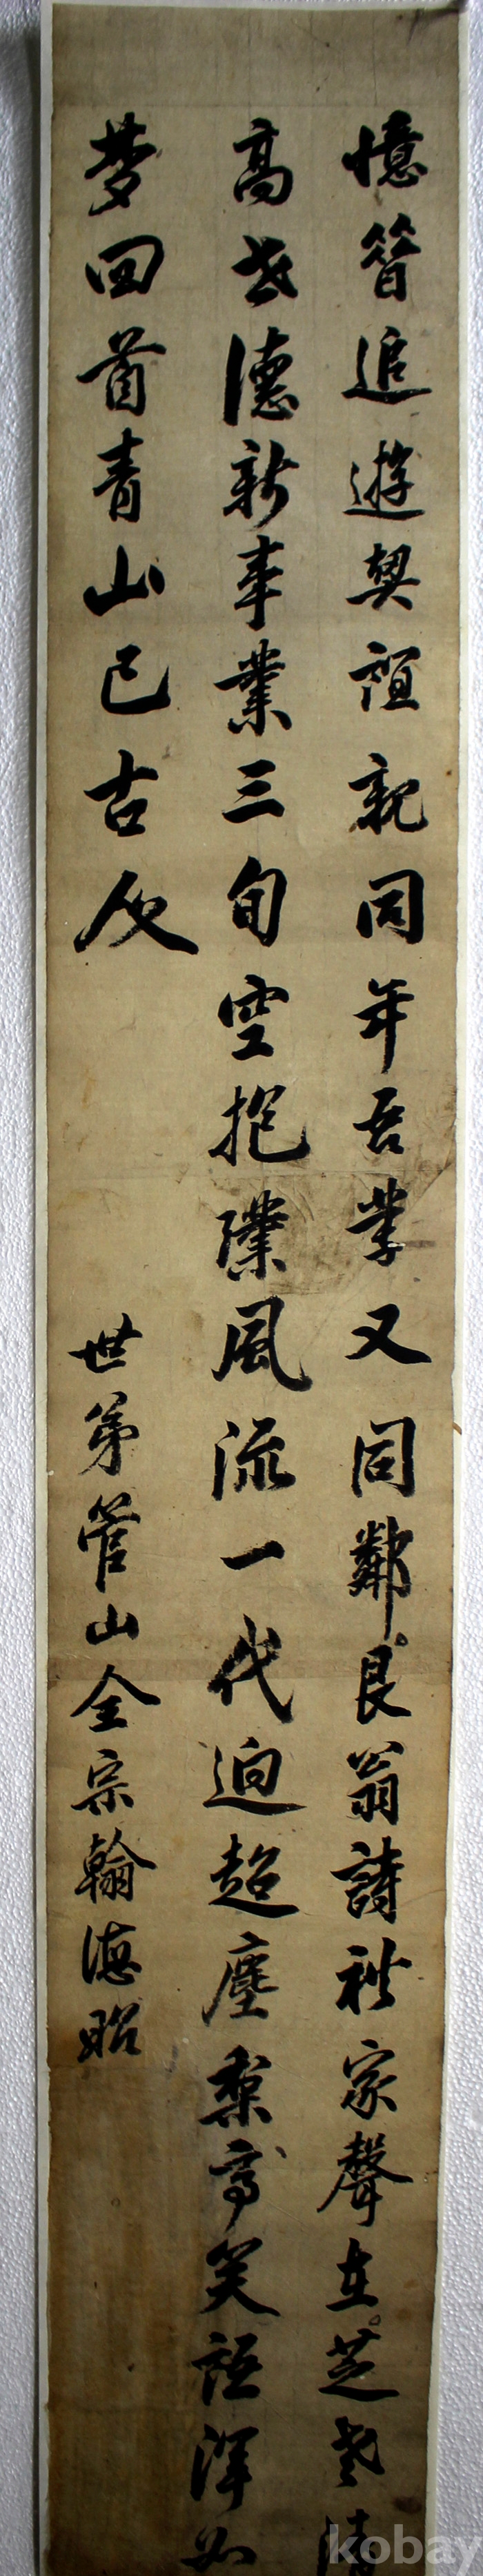 憶昔追遊契誼親同年吾輩又同鄰艮翁詩社家聲在芝老清
高世德新事業三旬空抱璞風流一代迥超塵梨亭笑語渾如
夢回首青山已古人
世弟管山金宗翰德昭
kobay